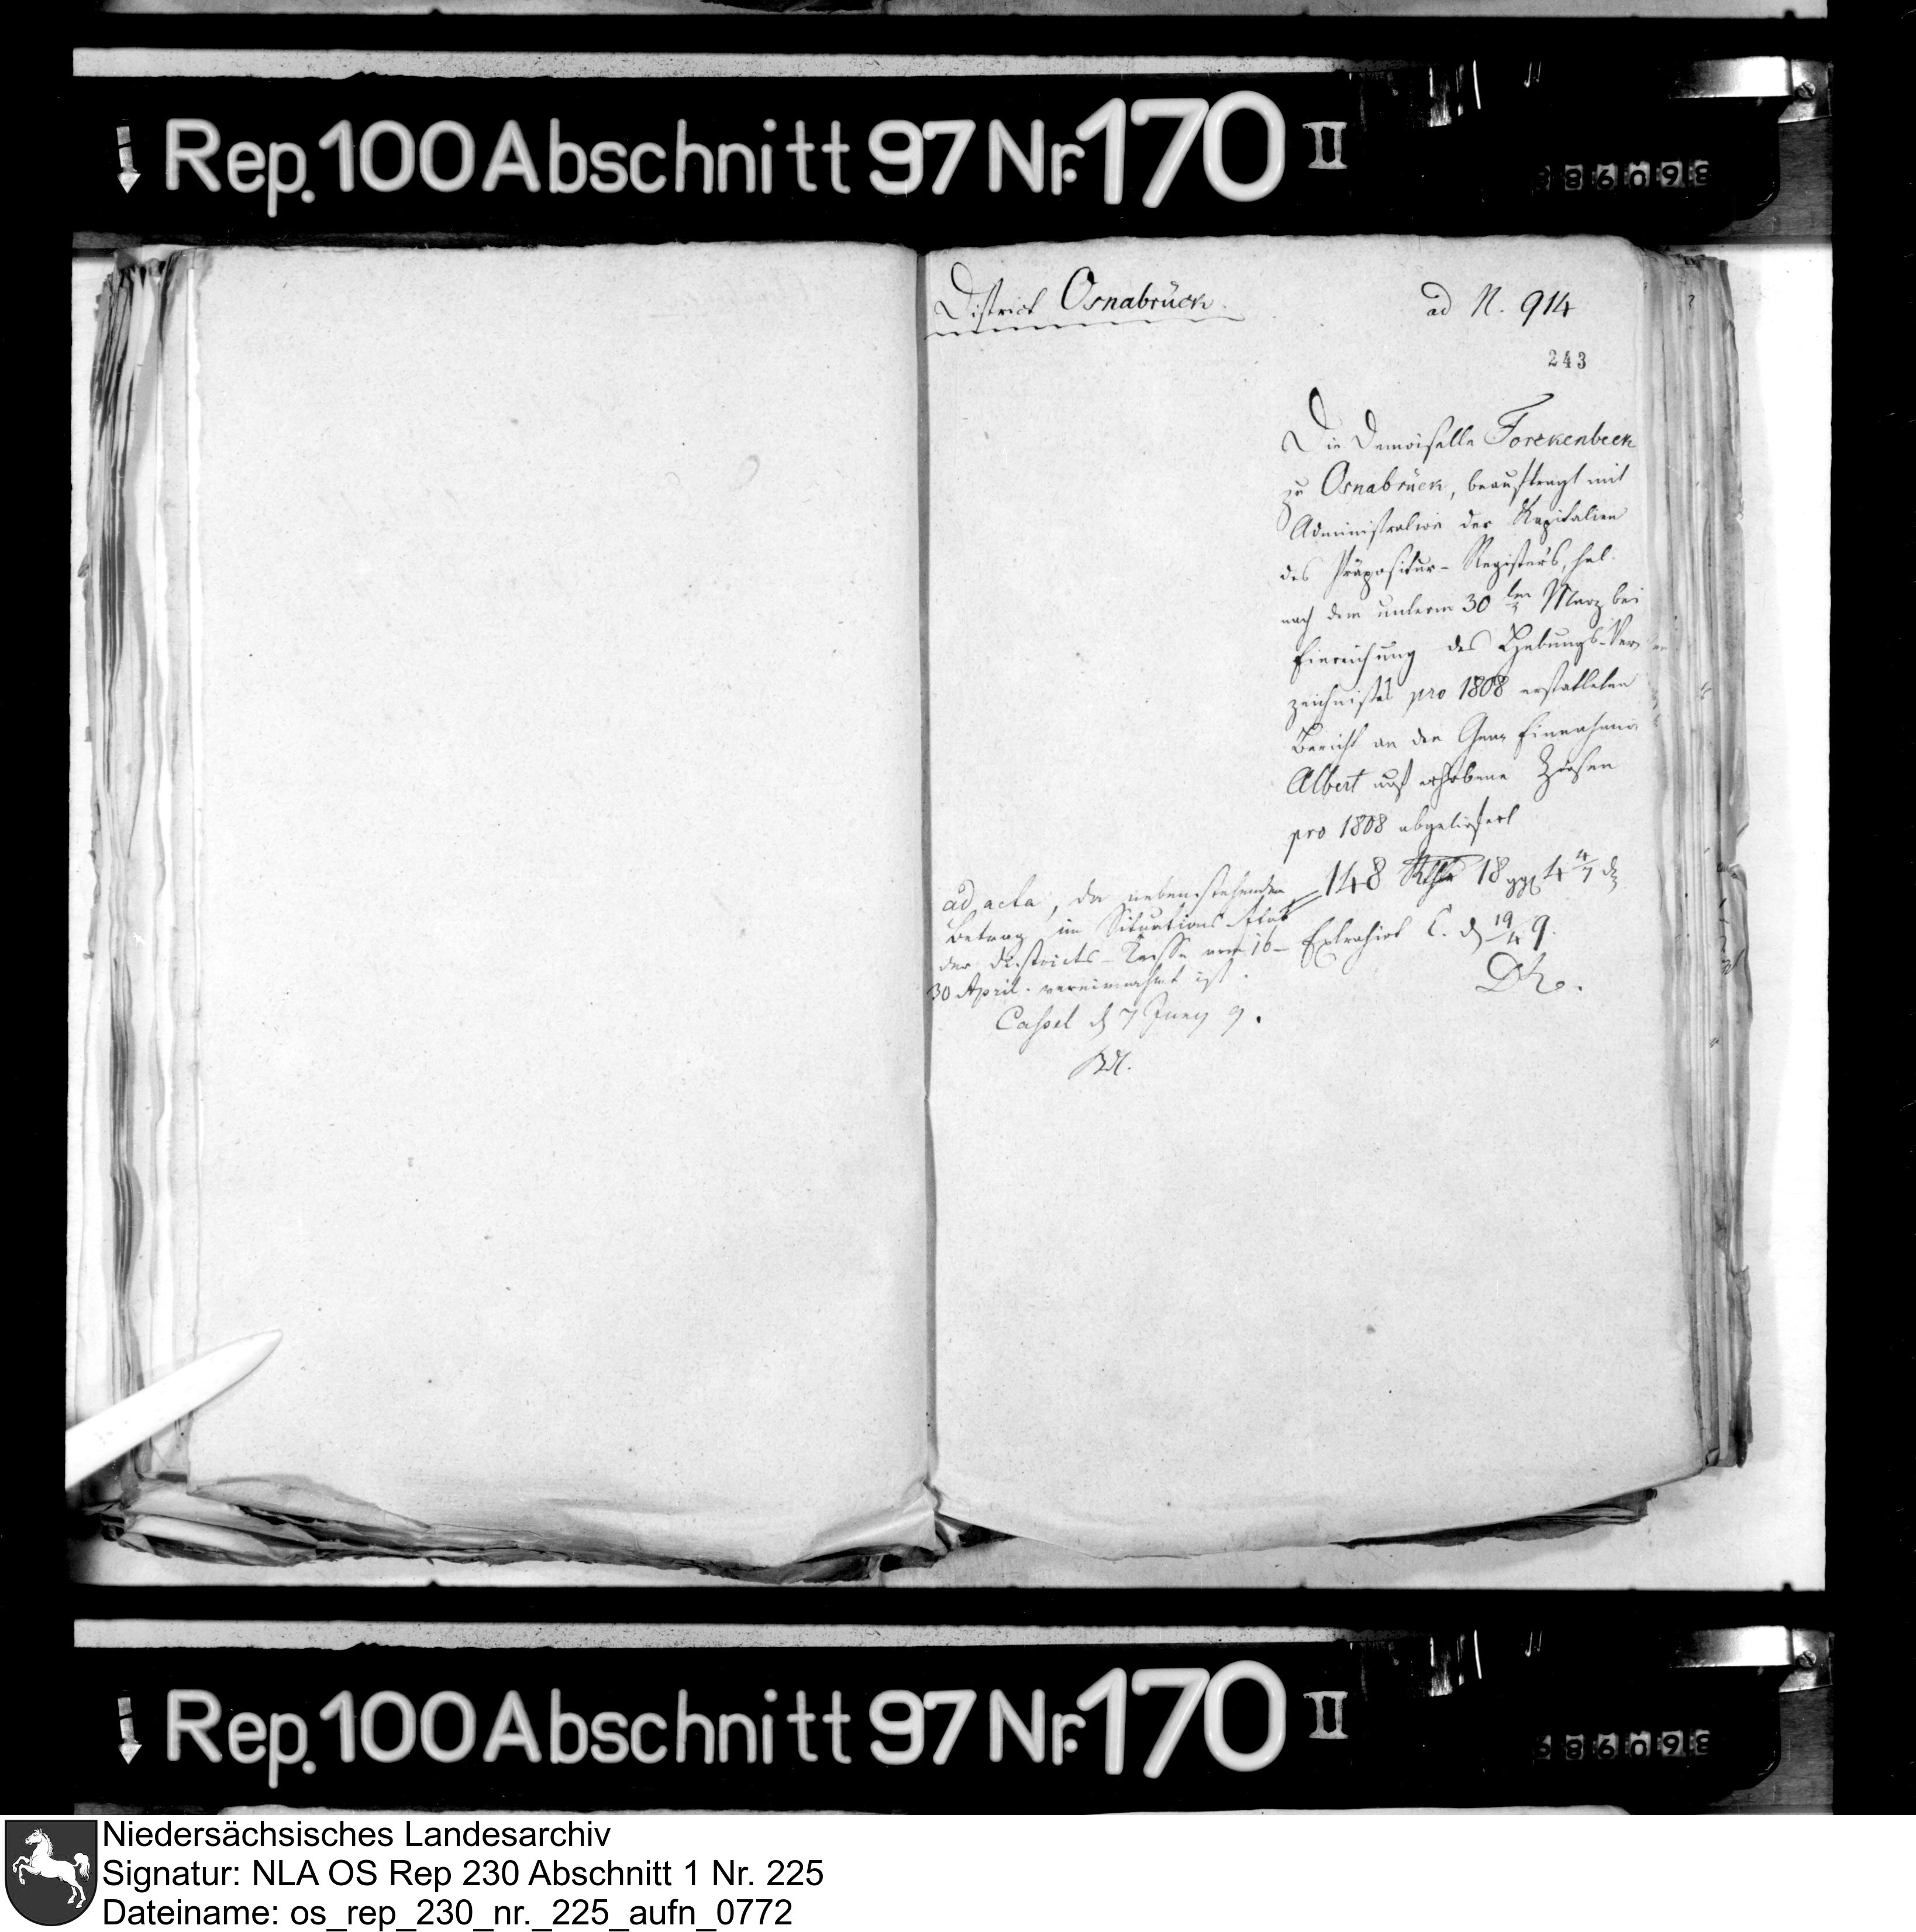 Rep. 100 Abschnitt 97 Nr. 170 II
District Osnabrück.
ad N. 914
243
Die Demoiselle Forckenbeck
zu Osnabrück, beauftragt mit
Administration der Kapitalien
des Präpositur-Registers, hat
nach dem unterm 30 ten März bei
Einreichung des Hebungs-Ver
zeichnisses pro 1808 erstatteten
Bericht an den Einnehmer
Albert erhobene Zinsen
pro 1808 abgeliefert
148 Rthlr 18 ggl 4 4/7 d
Extrahirt C. d 19/4 9.
ad acta, da nebenstehender
Betrag im Situations Etat
der Districts-Casse vom 16-
30 April. vereinnahmt ist.
Cassel d 7 Juny 9.
Rep. 100 Abschnitt 97 Nr. 170 II
Niedersächsisches Landesarchiv
Signatur: NLA OS Rep 230 Abschnitt 1 Nr. 225
Dateiname: os_rep_230_nr._225_aufn_0772